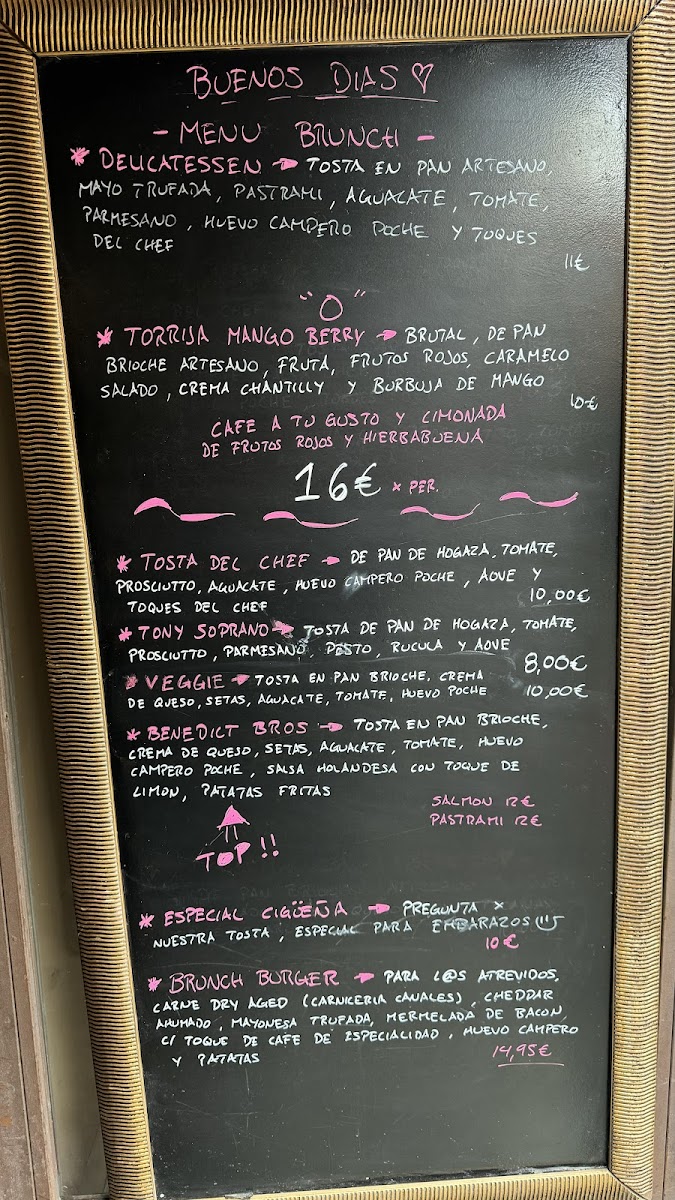 BUENOS DIAS ♡
- MENU BRUNCH -
* DELICATESSEN → TOSTA EN PAN ARTESANO,
MAYO TRUFADA, PASTRAMI, AGUACATE, TOMATE,
PARMESANO, HUEVO CAMPERO POCHE Y TOQUES
DEL CHEF
11€
"O"
* TORRIJA MANGO BERRY → BRUTAL, DE PAN
BRIOCHE ARTESANO, FRUTA, FRUTOS ROJOS, CARAMELO
SALADO, CREMA CHANTILLY Y BURBUJA DE MANGO
10€
CAFE A TU GUSTO Y LIMONADA
DE FRUTOS ROJOS Y HIERBABUENA
16€ × PER.
* TOSTA DEL CHEF → DE PAN DE HOGAZA, TOMATE,
PROSCIUTTO, AGUACATE, HUEVO CAMPERO POCHE, AOVE Y
TOQUES DEL CHEF 10,00€
* TONY SOPRANO → TOSTA DE PAN DE HOGAZA, TOMATE,
PROSCIUTTO, PARMESANO, PESTO, RUCULA Y AOVE
8,00€
* VEGGIE → TOSTA EN PAN BRIOCHE, CREMA
DE QUESO, SETAS, AGUACATE, TOMATE, HUEVO POCHE 10,00€
* BENEDICT BROS → TOSTA EN PAN BRIOCHE,
CREMA DE QUEJO, SETAS, AGUACATE, TOMATE, HUEVO
CAMPERO POCHE, SALSA HOLANDESA CON TOQUE DE
LIMON, PATATAS FRITAS
SALMON 12€
PASTRAMI 12€
TOP!!
* ESPECIAL CIGÜEÑA → PREGUNTA ×
NUESTRA TOSTA, ESPECIAL PARA EMBARAZOS
10€
* BRUNCH BURGER → PARA L@S ATREVIDOS,
CARNE DRY AGED (CARNICERIA CANALES), CHEDDAR
AHUMADO, MAYONESA TRUFADA, MERMELADA DE BACON,
C/ TOQUE DE CAFE DE ESPECIALIDAD, HUEVO CAMPERO
Y PATATAS 14,95€